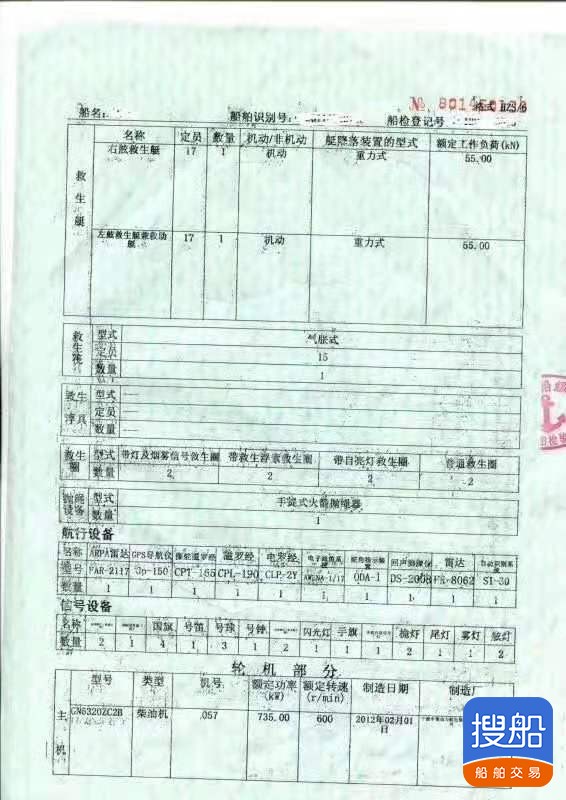 №
格式 HZS/6
船名：
船舶识别号：
船检登记号
名称 定员 数量 机动/非机动 艇降落装置的型式 额定工作负荷(kN)
救生艇
右舷救生艇 17 1 机动 重力式 55.00
左舷救生艇兼救助艇 17 1 机动 重力式 55.00
救生筏
型式 气胀式
定员 15
数量 1
救生浮具
型式 —
定员 —
数量 —
救生圈
型式 带灯及烟雾信号救生圈 带救生浮索救生圈 带自亮灯救生圈 普通救生圈
数量 2 2 2 2
抛绳设备
型式 手提式火箭抛绳器
数量 1
航行设备
名称 ARPA雷达 GPS导航仪 磁罗经 电罗经 回声测深仪 雷达 自动识别系统
型号 FAR-2117 Gp-150 CPT-165 CPL-190 CLP-2Y ODA-1 FR-8062 SI-30
数量 1 1 1 1 1 1 1 1 1 1
信号设备
名称 国旗 号笛 号球 号钟 闪光灯 手旗 桅灯 尾灯 雾灯 舷灯
数量 2 1 4 1 3 1 2 1 1 1 2 1 1 2
轮机部分
型号 类型 机号 额定功率(kW) 额定转速(r/min) 制造日期 制造厂
主机
GN6320ZC2B 柴油机 057 735.00 600 2012年02月01日
搜船
船舶交易